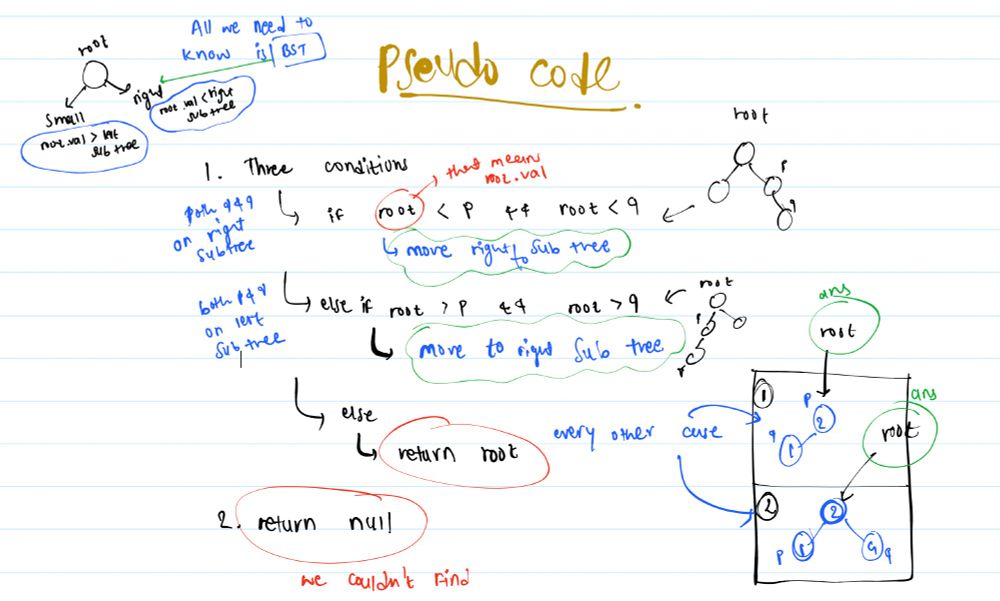 Pseudo code
All we need to
know is BST
root
small
right
root.val > left
sub tree
root.val < right
sub tree
1. Three conditions
that means
root.val
both q & q
on right
subtree
if root < p && root < q
move right to sub tree
root
p
q
both p & q
on left
sub tree
else if root > p && root > q
move to right sub tree
root
p
else
return root
every other case
ans
root
1
p
2
q
1
ans
root
2
2
p 1
q
2. return null
we couldn't find